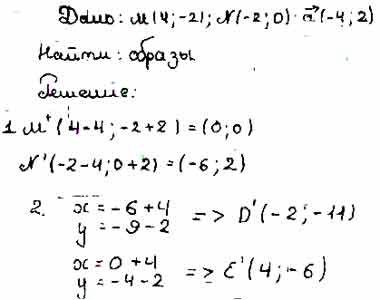 Дано: M(4;-2); N(-2;0) a⃗(-4;2)
Найти: образы
Решение:
1 M'(4-4; -2+2) = (0;0)
N'(-2-4; 0+2) = (-6; 2)
2. x = -6+4
y = -9-2 => D'(-2;-11)
x = 0+4
y = -4-2 => E'(4;-6)